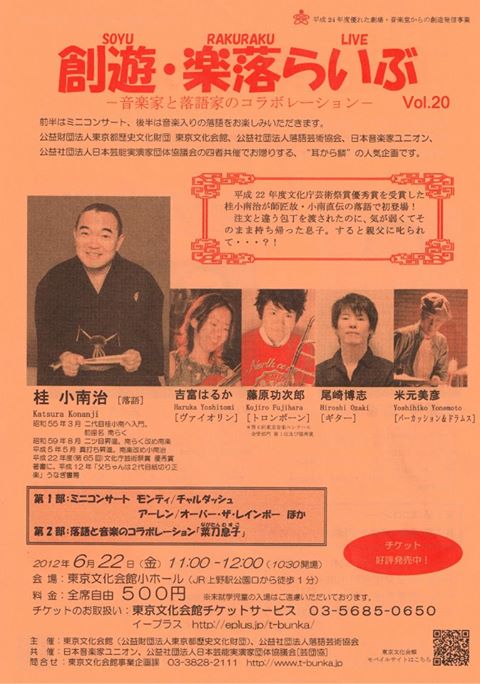 平成24年度優れた劇場・音楽堂からの創造発信事業
SOYU RAKURAKU LIVE
創遊・楽落らいぶ
－音楽家と落語家のコラボレーション－ Vol.20
前半はミニコンサート、後半は音楽入りの落語をお楽しみいただきます。
公益財団法人東京都歴史文化財団 東京文化会館、公益社団法人落語芸術協会、日本音楽家ユニオン、
公益社団法人日本芸能実演家団体協議会の四者共催でお贈りする、“耳から鱗”の人気企画です。
平成22年度文化庁芸術祭賞優秀賞を受賞した
桂小南治が師匠故・小南直伝の落語で初登場！
注文と違う包丁を渡されたのに、気が弱くてそ
のまま持ち帰った息子。すると親父に叱られ
て・・・？！
桂 小南治 [落語]
Katsura Konanji
昭和55年3月 二代目桂小南へ入門。
前座名 南らく
昭和59年8月 二ツ目昇進。南らく改め南楽
平成5年5月 真打ち昇進。南楽改め小南治
平成22年度(第65回)文化庁芸術祭賞 優秀賞
著書に、平成12年「父ちゃんは2代目紙切り正
楽」うなぎ書房
吉富はるか
Haruka Yoshitomi
[ヴァイオリン]
藤原功次郎
Kojiro Fujihara
[トロンボーン]
尾崎博志
Hiroshi Ozaki
[ギター]
米元美彦
Yoshihiko Yonemoto
[パーカッション&ドラムス]
第1部：ミニコンサート モンティ/チャルダッシュ
アーレン/オーバー・ザ・レインボー ほか
第2部：落語と音楽のコラボレーション「菜刀息子」
チケット
好評発売中！
2012年 6月22日(金) 11:00-12:00 (10:30開場)
会 場：東京文化会館小ホール (JR上野駅公園口から徒歩1分)
料 金：全席自由 500円 ※未就学児童の入場はご遠慮いただいております。
チケットのお取扱い：東京文化会館チケットサービス 03-5685-0650
イープラス http://eplus.jp/t-bunka/
主 催：東京文化会館（公益財団法人東京都歴史文化財団）、公益社団法人落語芸術協会
共 催：日本音楽家ユニオン、公益社団法人日本芸能実演家団体協議会[芸団協]
問合せ：東京文化会館事業企画課 03-3828-2111 http://www.t-bunka.jp/
東京文化会館
モバイルサイトはこちら